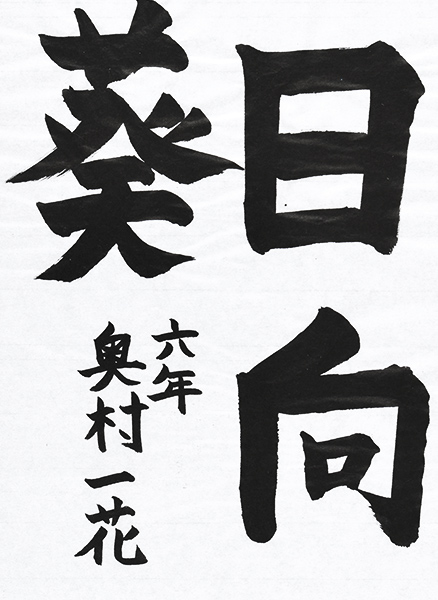 日向
葵
六年
奥村一花